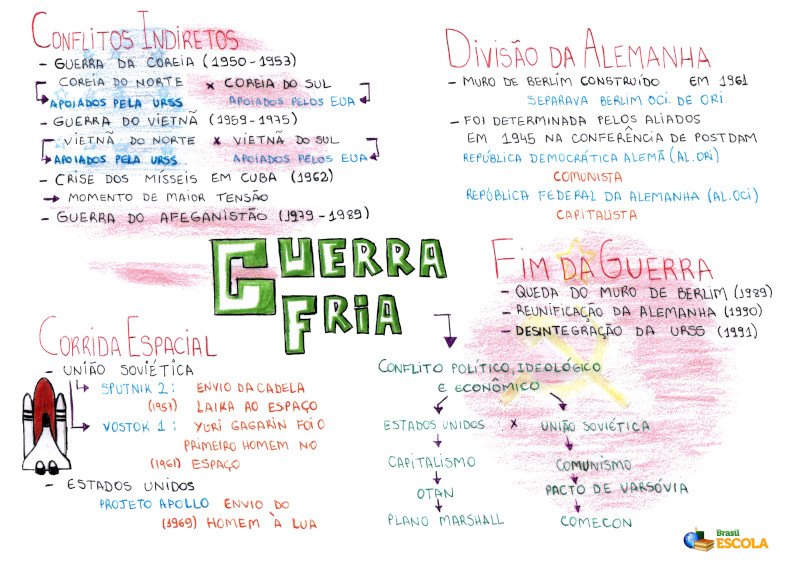 CONFLITOS INDIRETOS
- GUERRA DA COREIA (1950-1953)
COREIA DO NORTE x COREIA DO SUL
APOIADOS PELA URSS APOIADOS PELOS EUA
- GUERRA DO VIETNÃ (1959-1975)
VIETNÃ DO NORTE x VIETNÃ DO SUL
APOIADOS PELA URSS APOIADOS PELOS EUA
- CRISE DOS MÍSSEIS EM CUBA (1962)
→ MOMENTO DE MAIOR TENSÃO
- GUERRA DO AFEGANISTÃO (1979-1989)
DIVISÃO DA ALEMANHA
- MURO DE BERLIM CONSTRUÍDO EM 1961
SEPARAVA BERLIM OCI. DE ORI.
- FOI DETERMINADA PELOS ALIADOS
EM 1945 NA CONFERÊNCIA DE POSTDAM
REPÚBLICA DEMOCRÁTICA ALEMÃ (AL.ORI)
COMUNISTA
REPÚBLICA FEDERAL DA ALEMANHA (AL.OCI)
CAPITALISTA
GUERRA
FRIA
FIM DA GUERRA
- QUEDA DO MURO DE BERLIM (1989)
- REUNIFICAÇÃO DA ALEMANHA (1990)
- DESINTEGRAÇÃO DA URSS (1991)
CORRIDA ESPACIAL
- UNIÃO SOVIÉTICA
SPUTNIK 2: ENVIO DA CADELA
(1957) LAIKA AO ESPAÇO
VOSTOK 1: YURI GAGARIN FOI O
PRIMEIRO HOMEM NO
(1961) ESPAÇO
- ESTADOS UNIDOS
PROJETO APOLLO ENVIO DO
(1969) HOMEM À LUA
CONFLITO POLÍTICO, IDEOLÓGICO
E ECONÔMICO
ESTADOS UNIDOS x UNIÃO SOVIÉTICA
CAPITALISMO COMUNISMO
OTAN PACTO DE VARSÓVIA
PLANO MARSHALL COMECON
Brasil
ESCOLA